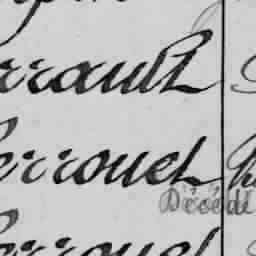 rrault
errouet
Décédé
errouet